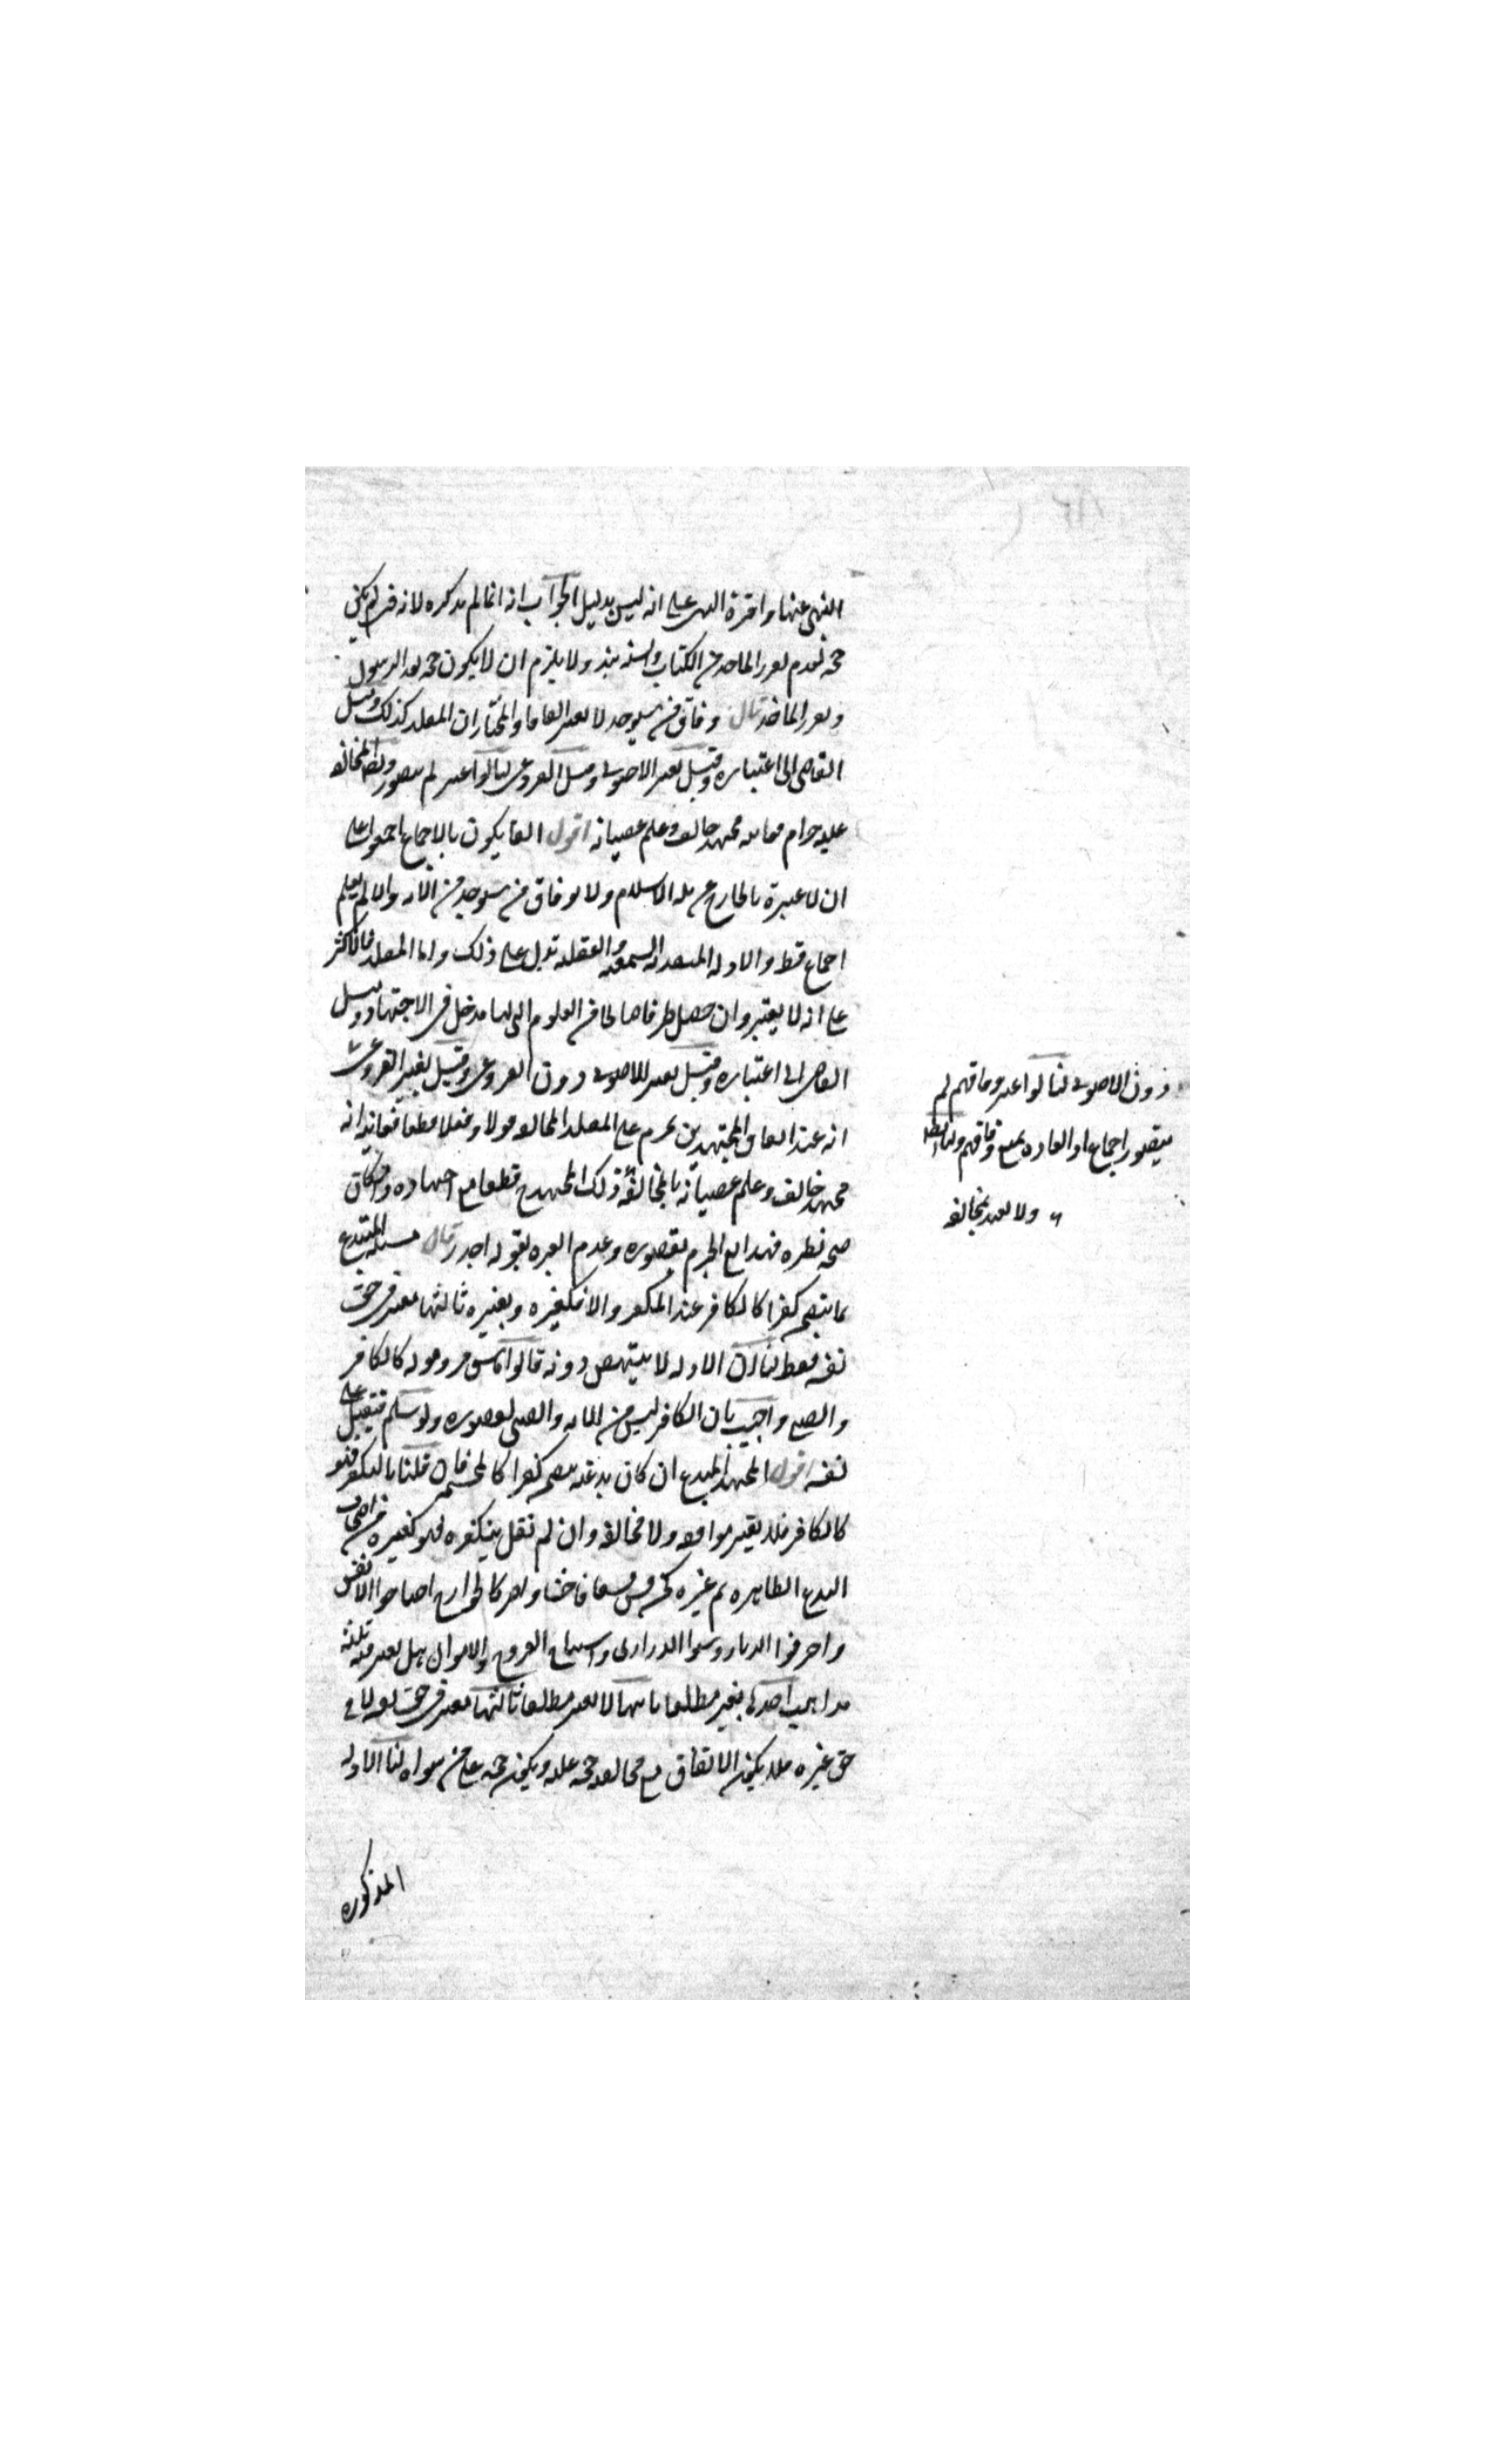 النهى عنها واقره اليه على انه ليس بدليل الجواب انه انما لم يذكره لانه حينئذ لم يكن
حجة لعدم تقرر الماخذ من الكتاب والسنة بعد ولا يلزم ان لا يكون حجة بعد الرسول
وتقرر الماخذ قال وفاق من سيوجد لا يعتبر اتفاقا والمختار ان المقلد كذلك وميل
القاضى الى اعتباره وقيل يعتبر الاصولى وقيل الفروعى لنا لو اعتبر لم يتصور وايضا المخالفة
عليه حرام فغايته مجتهد خالف وعلم عصيانه اقول القائلون بالاجماع اجمعوا على
ان لا عبرة بالخارج عن ملة الاسلام ولا بوفاق من سيوجد من الامة والا لم يعلم
اجماع قط والادلة السمعية والعقلية تدل على ذلك واما المقلد فالاكثر
على انه لا يعتبر وان حصل طرفا صالحا من العلوم التى لها مدخل فى الاجتهاد وميل
القاضى الى اعتباره وقيل يعتبر الاصولى دون الفروعى وقيل يعتبر الفروعى
انه عند اتفاق المجتهدين يحرم على المقلد المخالفة قولا وفعلا قطعا فغايته انه
مجتهد خالف وعلم عصيانه بالمخالفة ذلك المجتهد قطعا مع اجتهاده وامكان
صحة نظره فهذا مع الجزم بقصوره وعدم العبرة بقوله اجدر قال مسئلة المبتدع
بما يتضمن كفرا كالكافر عند المكفر والا فكغيره وبغيره ثالثها يعتبر فى حق
نفسه فقط لنا ان الادلة لا تنتهض دونه قالوا فاسق فيرد قوله كالكافر
والصبى واجيب بان الكافر ليس من الامة والصبى لقصوره ولو سلم فيقبل على
نفسه اقول المجتهد المبتدع ان كان بدعته يتضمن كفرا كالمجسم فان قلنا بالتكفير فهو
كالكافر فلا يعتبر موافقته ولا مخالفته وان لم نقل بتكفيره فهو كغيره من اصحاب
البدع الظاهرة ثم غيره كمن فسق فسقا فاحشا واصر كالخوارج استباحوا الانفس
واحرقوا الديار وسبوا الذرارى واستباحوا الفروج والاموال هل يعتبر فيه ثلثة
مذاهب احدها يعتبر مطلقا ثانيها لا يعتبر مطلقا ثالثها يعتبر فى حق نفسه لا فى
حق غيره فلا يكون الاتفاق مع مخالفته حجة عليه ويكون حجة على من سواه لنا الادلة
المذكورة
دون الاصولى لنا لو اعتبر وفاقهم لم
يتصور اجماع اذ العادة تمنع وفاقهم ولنا ايضا
ولا يعتبر بمخالفته